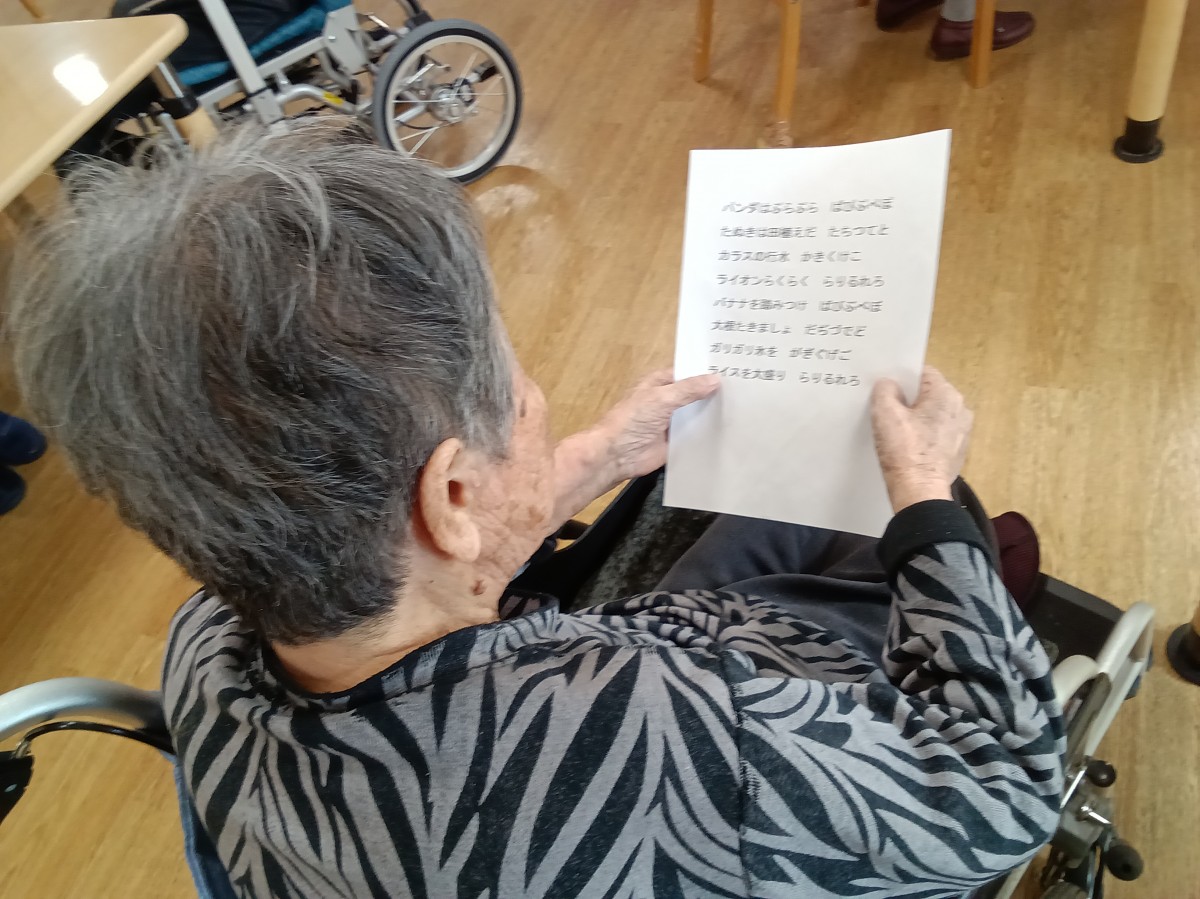 パンダはぷらぷら　ぱぴぷぺぽ
たぬきは田植えだ　たちつてと
カラスの行水　かきくけこ
ライオンらくらく　らりるれろ
バナナを踏みつけ　ばびぶべぼ
大根たきましょ　だぢづでど
ガリガリ氷を　がぎぐげご
ライスを大盛り　らりるれろ